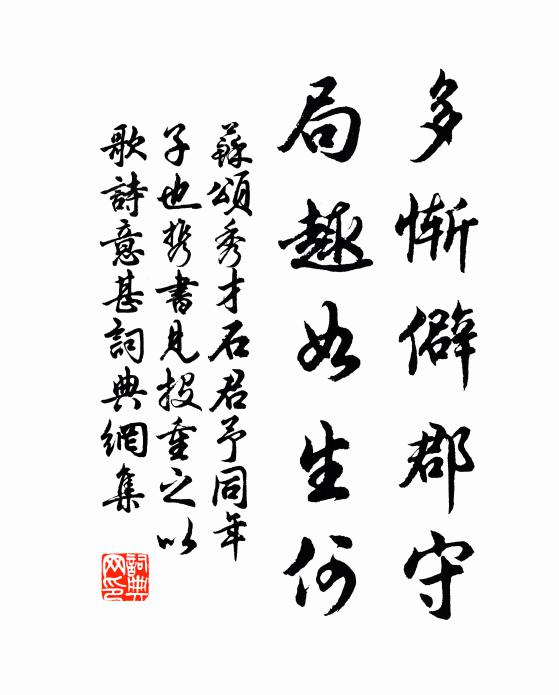 多慚僻郡守
局趣如生何
蘇頌秀才石君予同年
子也携書見投重之以
歌詩意甚詞典網集
詞典网印